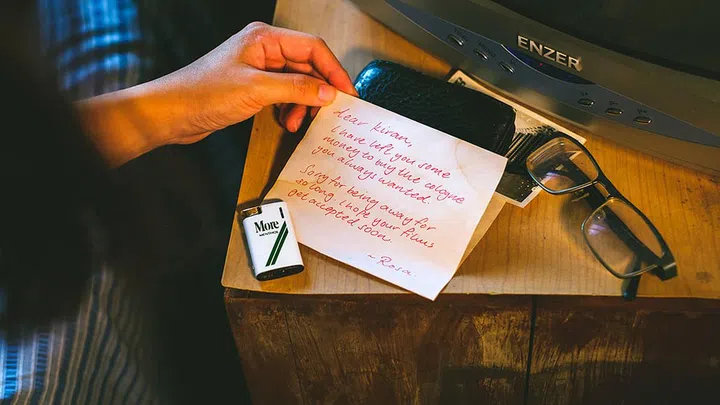 ENZER
dear kiran,
i have left you some
money to buy the cologne
you always wanted.
Sorry for being away for
so long. i hope your films
get accepted soon.
~ Rosa
More
MENTHOL